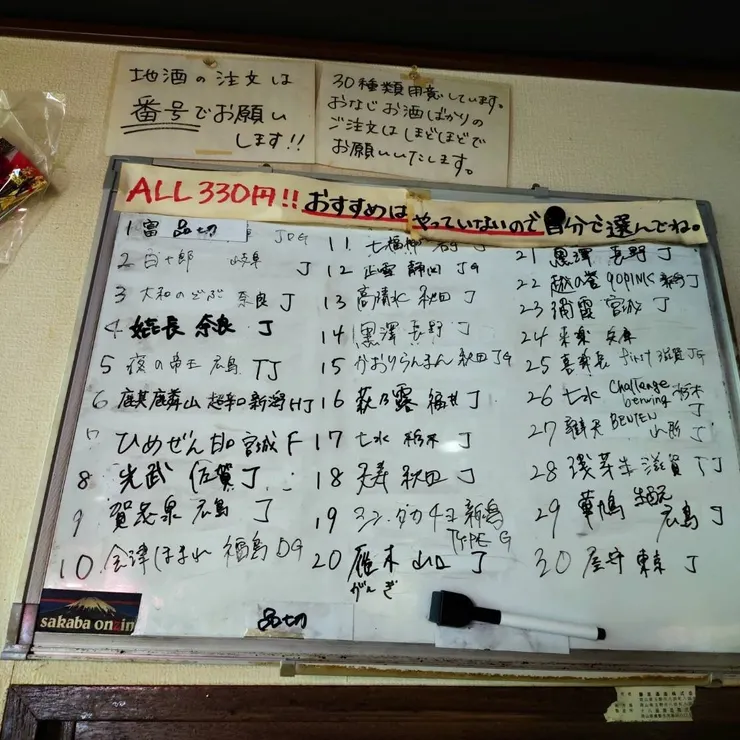 地酒の注文は
番号でお願い
します!!
30種類用意しています。
おなじお酒ばかりの
ご注文はしほどほどで
お願いいたします。
ALL 330円!! おすすめは やっていないので自分で選んでね。
1 富 品切 JDG
2 百十郎 岐阜 J
3 大和のどぶ 奈良 J
4 長 奈良 J
5 夜の帝王 広島 TJ
6 麒麟山 超辛口 新潟 HJ
7 ひめぜん 甘口 宮城 F
8 光武 佐賀 J
9 賀茂泉 広島 J
10 会津ほまれ 福島 DG
11 七福神 J
12 正雪 静岡 JG
13 高清水 秋田 J
14 黒澤 長野 J
15 かおりらんまん 秋田 JG
16 萩乃露 J
17 七水 栃木 J
18 天寿 秋田 J
19 シン・タカチヨ 新潟
TYPE G
20 雁木 山口 J
がんぎ
21 黒澤 長野 J
22 越の誉 90PINK 新潟 J
23 浦霞 宮城 J
24 来楽 兵庫
25 喜楽長 first 滋賀 JG
26 七水 Challenge
brewing 栃木
J
27 辯天 BENTEN
山形 J
28 浅茅生 滋賀 TJ
29 華鳩 生酛
広島 J
30 屋守 東京 J
品切
sakaba onzin